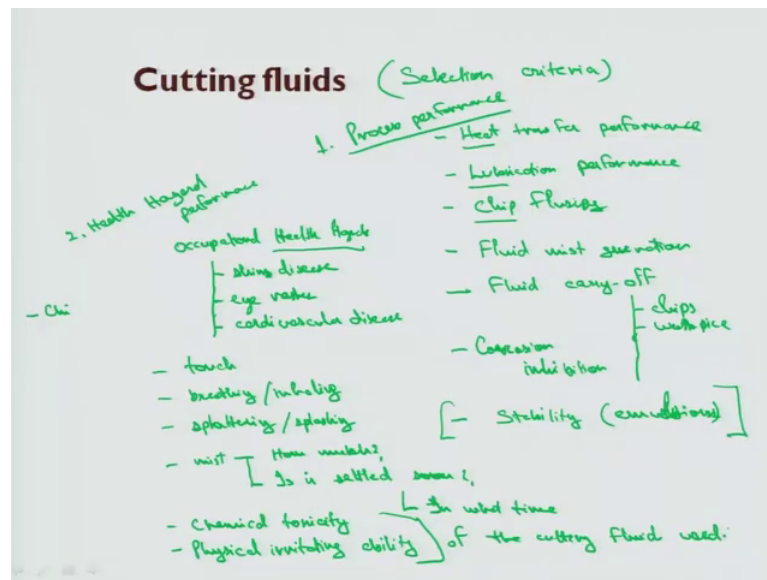 Cutting fluids (Selection criteria)
1. Process performance
- Heat transfer performance
- Lubrication performance
- Chip Flusing
- Fluid mist generation
- Fluid carry-off
- chips
- workpiece
- Corrosion
inhibition
[- Stability (emulsions)]
2. Health Hazard
performance
occupational Health Hazards
- skins disease
- eye rashes
- cardivascular disease
- Chi
- touch
- breathing/inhaling
- splattering/splashing
- mist
How much?,
Is is settled soon?,
In what time
- Chemical toxicity
- Physical irritating ability
of the cutting fluid used.